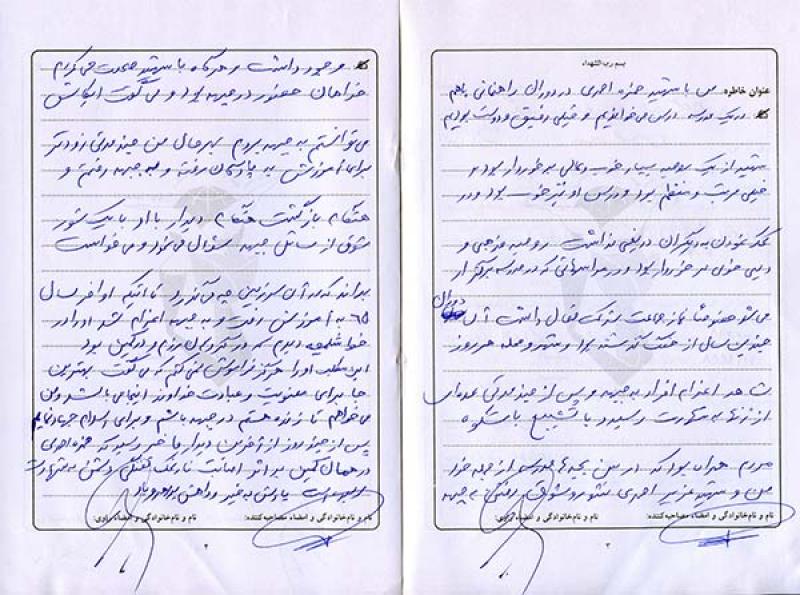 بسم رب الشهداء
عنوان خاطره: من با شهید حمزه احمدی در دوران راهنمائی باهم
در یک مدرسه درس می خواندیم و خیلی رفیق و دوست بودیم
شهید از یک روحیه بسیار خوب و عالی برخوردار بود و
خیلی مرتب و منظم بود و درس او نیز خوب بود و در
کمک نمودن به دیگران دریغی نداشت روحیه مذهبی و
دینی خوبی برخوردار بود و در مراسمهائی که در مدرسه برگزار
می شد خصوصاً نماز جماعت شرکت فعال داشت آن دوران
چندین سال از جنگ گذشته بود و شهر و محله هر روز
شاهد اعزام افراد به جبهه و پس از چند مدتی عده ای
از آنها به شهادت رسیده و با تشییع با شکوه
مردم همراه بود که در بین بچه های مدرسه از جمله خود
من و شهید عزیز احمدی شور و شوق رفتن به جبهه
نام و نام خانوادگی و امضاء مصاحبه کننده: نام و نام خانوادگی و امضاء راوی:
۲
وجود داشت و هرگاه با شهید صحبت می کردم
خواهان حضور در جبهه بود و می گفت ای کاش
می توانستم به جبهه بروم بهرحال من چند مدتی زودتر
برای آموزش به پادگان رفته و به جبهه رفتم و
هنگام بازگشت هنگام دیدار با او با یک شور
شوق از مسائل جبهه سئوال می نمود و می خواست
بداند که در آن سرزمین چه می گذرد تا اینکه اواخر سال
۶۵ به آموزش رفت و به جبهه اعزام شد او را در
دیدم که در کمین بود
این مطلب او را هرگز فراموش نمی کنم که می گفت بهترین
جا برای معنویت و عبادت خداوند اینجا می باشد و من
می خواهم تا زنده هستم در جبهه باشم و برای اسلام جهاد نمایم
پس از چند روز از آخرین دیدار ما خبر رسید که حمزه احمدی
در همان کمین بر اثر اصابت نارنجک تفنگی دشمن به شهادت
رسیده است یادش به خیر و راهش پر رهرو باد
نام و نام خانوادگی و امضاء مصاحبه کننده: نام و نام خانوادگی و امضاء راوی: